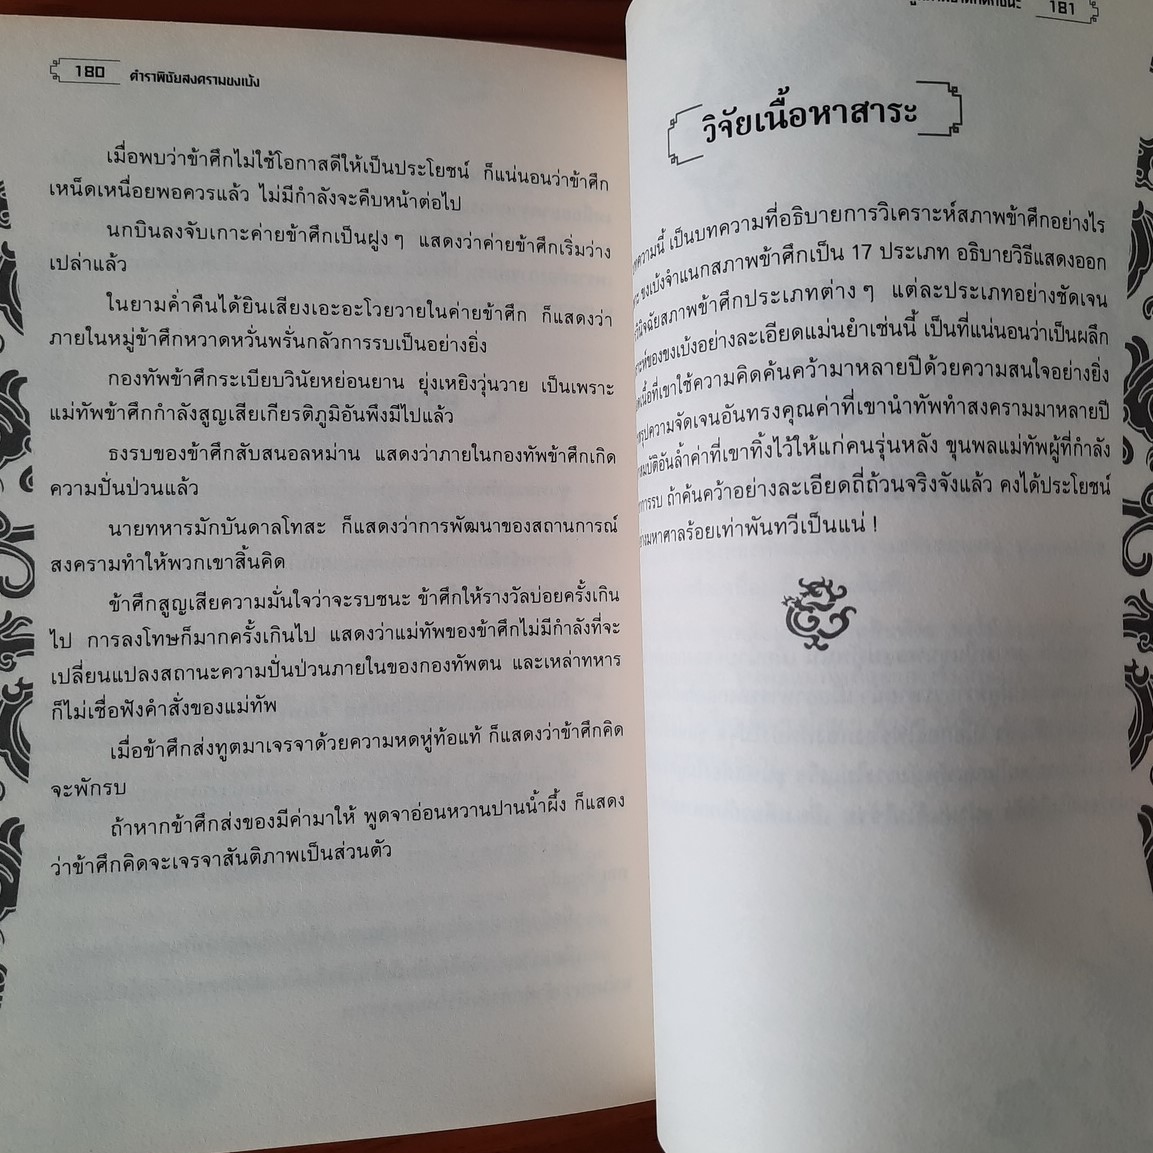 180 ตำราพิชัยสงครามขงเบ้ง
เมื่อพบว่าข้าศึกไม่ใช้โอกาสดีให้เป็นประโยชน์ ก็แน่นอนว่าข้าศึก
เหน็ดเหนื่อยพอควรแล้ว ไม่มีกำลังจะคืบหน้าต่อไป
นกบินลงจับเกาะค่ายข้าศึกเป็นฝูงๆ แสดงว่าค่ายข้าศึกเริ่มว่าง
เปล่าแล้ว
ในยามค่ำคืนได้ยินเสียงเอะอะโวยวายในค่ายข้าศึก ก็แสดงว่า
ภายในหมู่ข้าศึกหวาดหวั่นพรั่นกลัวการรบเป็นอย่างยิ่ง
กองทัพข้าศึกระเบียบวินัยหย่อนยาน ยุ่งเหยิงวุ่นวาย เป็นเพราะ
แม่ทัพข้าศึกกำลังสูญเสียเกียรติภูมิอันพึงมีไปแล้ว
ธงรบของข้าศึกสับสนอลหม่าน แสดงว่าภายในกองทัพข้าศึกเกิด
ความปั่นป่วนแล้ว
นายทหารมักบันดาลโทสะ ก็แสดงว่าการพัฒนาของสถานการณ์
สงครามทำให้พวกเขาสิ้นคิด
ข้าศึกสูญเสียความมั่นใจว่าจะรบชนะ ข้าศึกให้รางวัลบ่อยครั้งเกิน
ไป การลงโทษก็มากครั้งเกินไป แสดงว่าแม่ทัพของข้าศึกไม่มีกำลังที่จะ
เปลี่ยนแปลงสถานะความปั่นป่วนภายในของกองทัพตน และเหล่าทหาร
ก็ไม่เชื่อฟังคำสั่งของแม่ทัพ
เมื่อข้าศึกส่งทูตมาเจรจาด้วยความหดหู่ท้อแท้ ก็แสดงว่าข้าศึกคิด
จะพักรบ
ถ้าหากข้าศึกส่งของมีค่ามาให้ พูดจาอ่อนหวานปานน้ำผึ้ง ก็แสดง
ว่าข้าศึกคิดจะเจรจาสันติภาพเป็นส่วนตัว
181
วิจัยเนื้อหาสาระ
ความนี้ เป็นบทความที่อธิบายการวิเคราะห์สภาพข้าศึกอย่างไร
ขงเบ้งจำแนกสภาพข้าศึกเป็น 17 ประเภท อธิบายวิธีแสดงออก
วินิจฉัยสภาพข้าศึกประเภทต่างๆ แต่ละประเภทอย่างชัดเจน
ของขงเบ้งอย่างละเอียดแม่นยำเช่นนี้ เป็นที่แน่นอนว่าเป็นผลึก
เนื้อที่เขาใช้ความคิดค้นคว้ามาหลายปีด้วยความสนใจอย่างยิ่ง
ความจัดเจนอันทรงคุณค่าที่เขานำทัพทำสงครามมาหลายปี
สมบัติอันล้ำค่าที่เขาทิ้งไว้ให้แก่คนรุ่นหลัง ขุนพลแม่ทัพผู้ที่กำลัง
การรบ ถ้าค้นคว้าอย่างละเอียดถี่ถ้วนจริงจังแล้ว คงได้ประโยชน์
มหาศาลร้อยเท่าพันทวีเป็นแน่ !